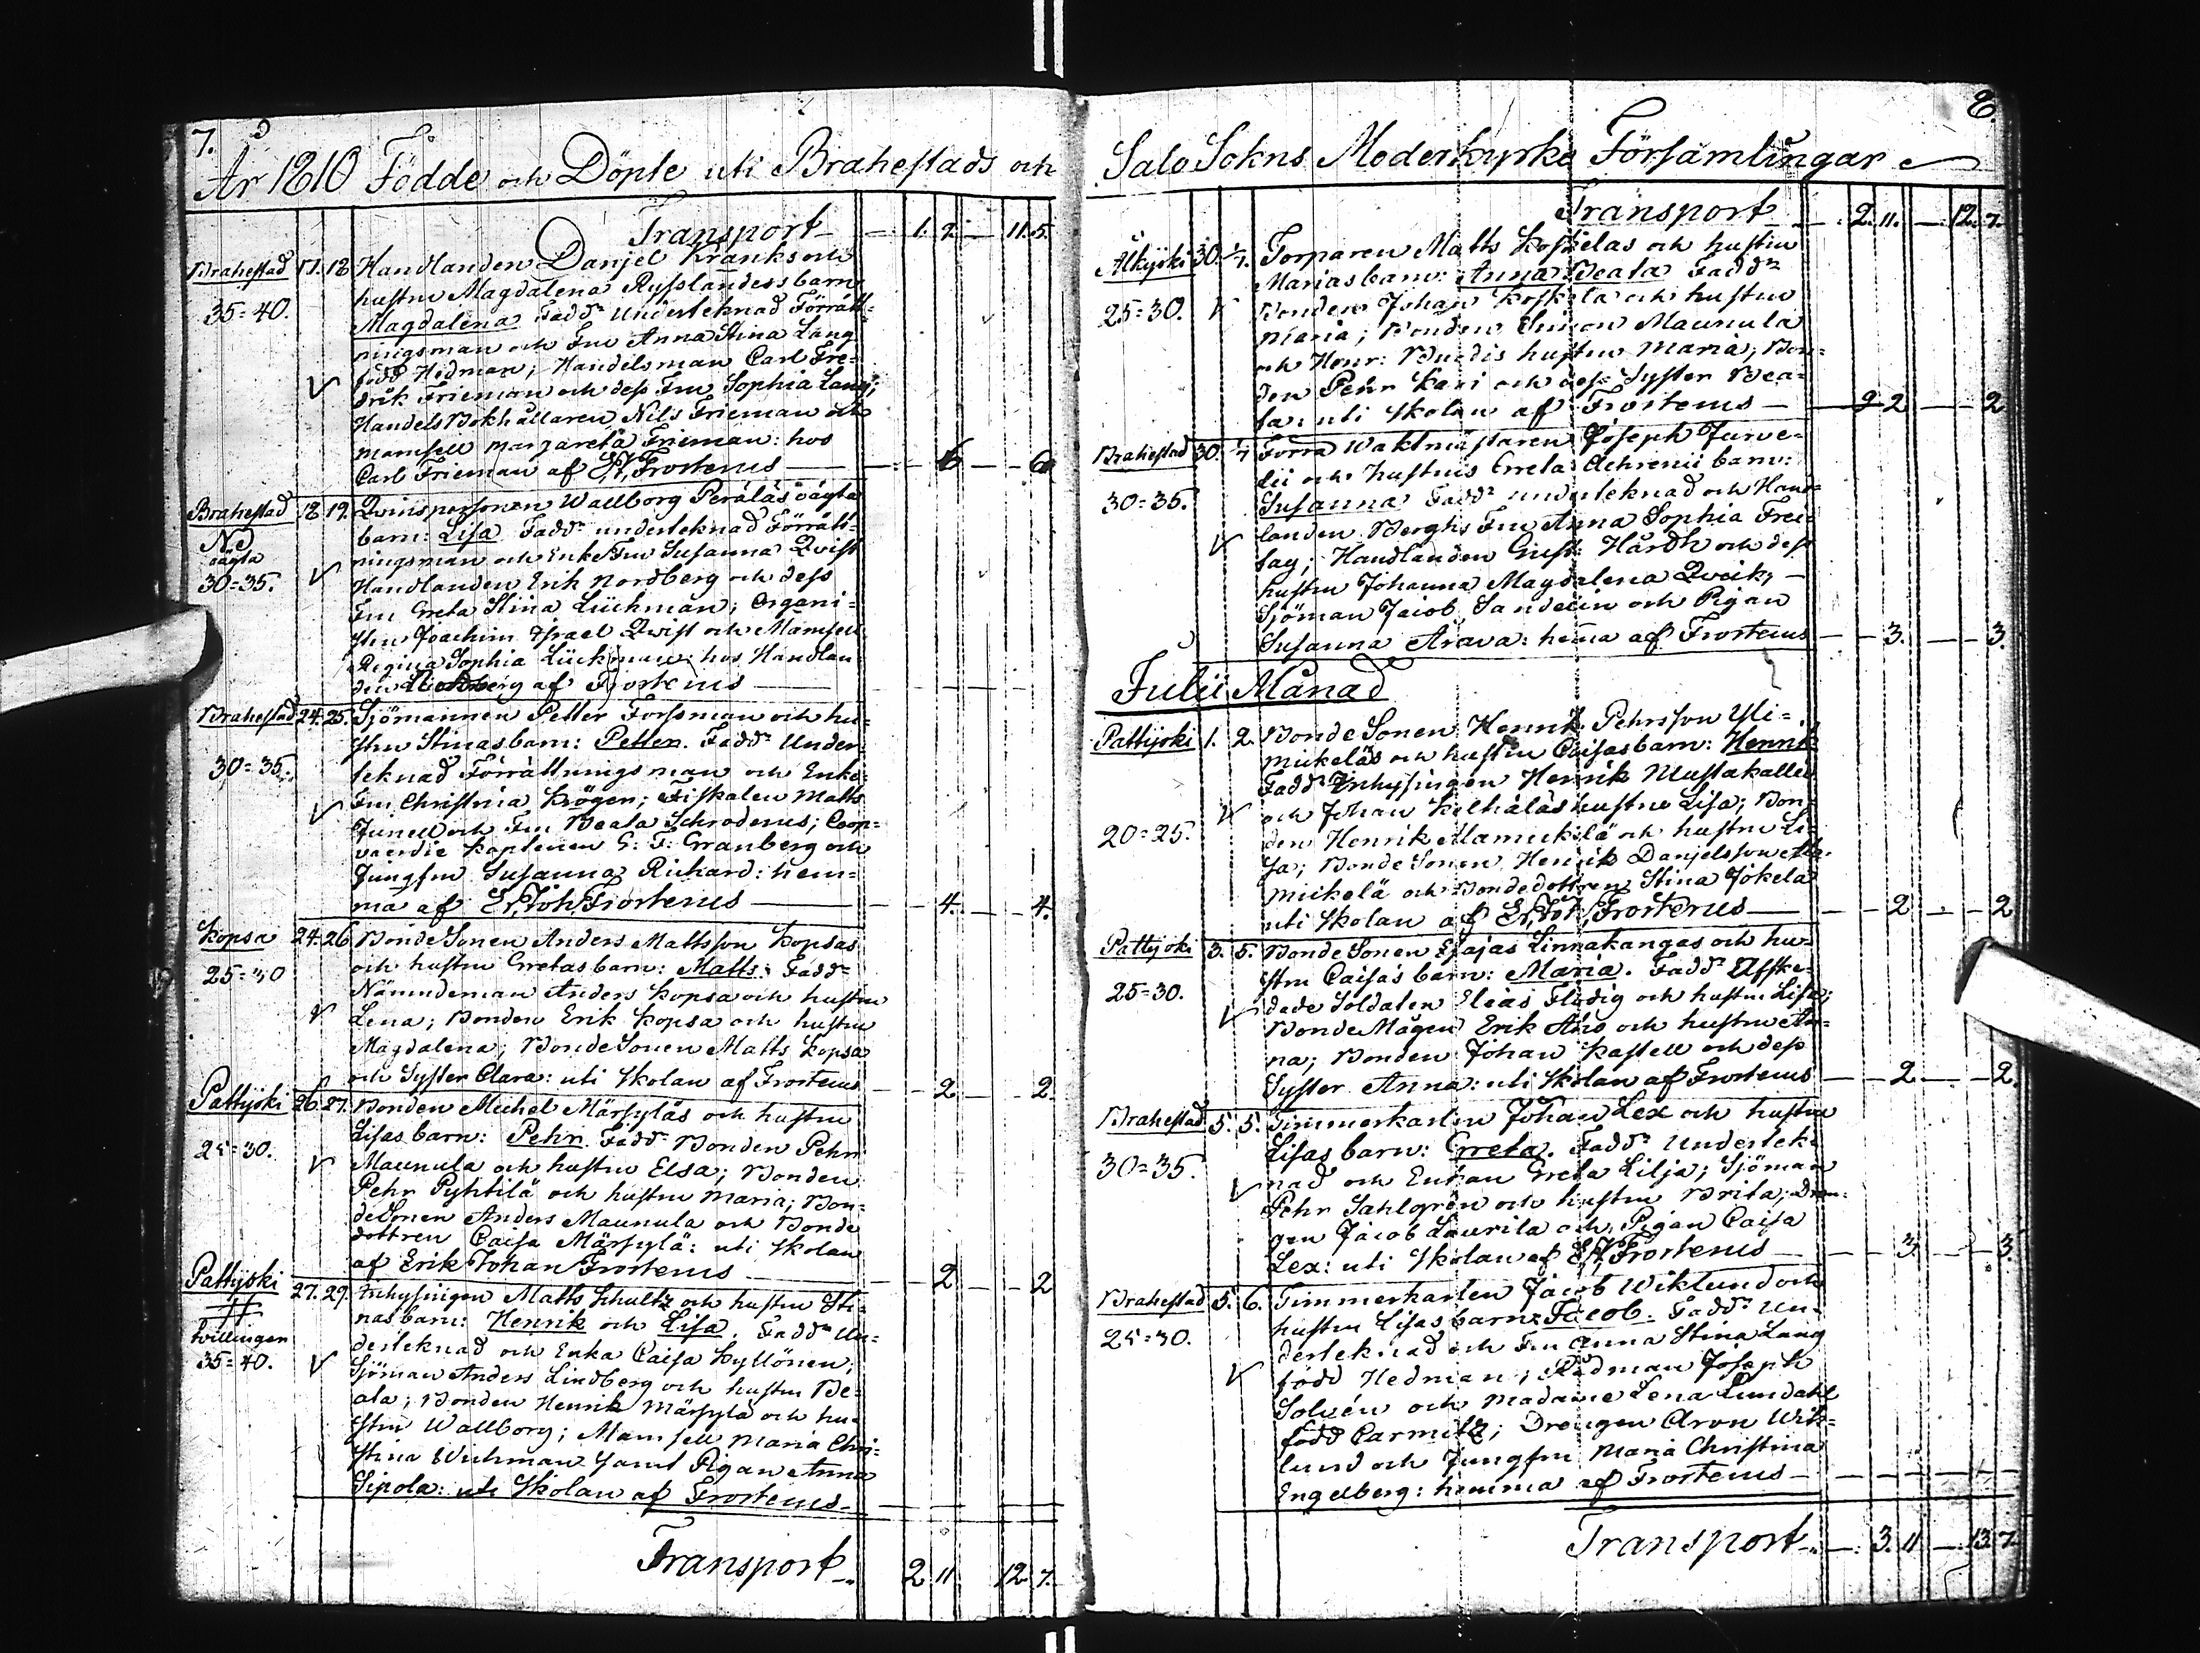 7.
År 1810 Födde och Döpte uti Brahestads och
Transport 1. 2. 11. 5.
Brahestad 17. 18 Handlanden Danjel Kranks och
hustru Magdalena Rysslandess barn
35=40. Magdalena Fadd. Underteknad Förrätt-
ningsman och Fru Anna Stina Lang
född Hedman; Handelsman Carl Fre-
drik Frieman och dess Fru Sophia Lang;
Handels Bokhållaren Nils Frieman och
Mamsell Margareta Frieman: hos
Carl Frieman af Frosterus 6 6
Brahestad 18 19. Qvinspersonen Wallborg Peräläs oägta
barn: Lisa Fadd. underteknad Förrätt-
oägta ningsman och Enke Fru Susanna Qvist
30=35. Handlanden Erik Nordberg och dess
Fru Greta Stina Lückman; Organi-
sten Joachim Israel Qvist och Mamsell
Regina Sophia Lückman: hos Handlan-
den Nordberg af Frosterus
Brahestad 24. 25. Sjömannen Petter Forssman och hu-
stru Stinas barn: Petter. Fadd. Under-
30=35. teknad Förrättningsman och Enke-
Fru Christina Krögen; Fiskalen Matts
Junell och Fru Beata Schroderus; Coop-
vaerdie Kaptenen G: F: Granberg och
Jungfru Susanna Richard: hem-
ma af Er. Joh. Frosterus 4. 4.
Kopsa 24. 26 Bonde Sonen Anders Mattsson Kopsas
och hustru Gretas barn: Matts. Fadd.
25=30 Nämndeman Anders Kopsa och hustru
Lena; Bonden Erik Kopsa och hustru
Magdalena; Bonde Sonen Matts Kopsa
och Syster Clara: uti Skolan af Frosterus 2 2.
Pattijoki 26. 27. Bonden Michel Märsyläs och hustru
Lisas barn: Pehr. Fadd. Bonden Pehr
25=30. Maunula och hustru Elsa; Bonden
Pehr Pyhtilä och hustru Maria; Bon-
de Sonen Anders Maunula och Bonde
dottren Caisa Märsylä: uti Skolan
af Erik Johan Frosterus 2 2
Pattijoki 27. 29. Inhysingen Matts Schultz och hustru Sti-
nas barn: Henrik och Lisa. Fadd. Un-
tvillingar derteknad och Enka Caisa Kyllönen;
35=40. Sjöman Anders Lindberg och hustru Be-
ata; Bonden Henrik Märsylä och hu-
stru Wallborg; Mamsell Maria Chri-
stina Wichman samt Pigan Anna
Sipola: uti Skolan af Frosterus
Transport 2 11 12 7.
8.
Salo Sokns Moderkyrko Församlingar
Transport 2. 11. 12. 7.
Alkijoki 30. 1/7. Torparen Matts Koskelas och hustru
Marias barn: Anna Beata Fadd.
25=30. Bonden Johan Koskela och hustru
Maria; Bonden Simon Maunula
och Henr: hustru Maria; Bon-
den Pehr Kari och dess Syster Bea-
ta: uti Skolan af Frosterus 2 2
Brahestad 30. 1/7 Förra Waktmästaren Joseph Jurve-
lii och hustrus Greta Achrenii barn:
30=35. Susanna Fadd. underteknad och Hand-
landen Berghs Fru Anna Sophia Frei-
tag; Handlanden Gust: Hårdh och dess
hustru Johanna Magdalena Qveik;
Sjöman Jacob Sandelin och Pigan
Susanna Arava: hema af Frosterus 3. 3.
Julii Månad
Pattijoki 1. 2. Bonde Sonen Henrik Pehrsson Yli-
mickeläs och hustru Caisas barn: Henrik
Fadd. Inhysingen Henrik Mustakallio
och Johan Kelhäläs hustru Lisa; Bon-
20=25. den Henrik Alamickilä och hustru Li-
sa; Bonde Sonen Henrik Danjelsson Ala-
mickelä och Bondedottren Stina Jokela
uti Skolan af Er. Joh. Frosterus 2 2
Pattijoki 3. 5. Bonde Sonen Esajas Linnakangas och hu-
stru Caisas barn: Maria. Fadd. Afske-
25=30. dade Soldaten Elias Flodig och hustru Lisa;
Bonde Mågen Erik Ahs och hustru An-
na; Bonden Johan Kastell och dess
Syster Anna: uti Skolan af Frosterus 2 2.
Brahestad 5. 5. Timmerkarlen Johan Lex och hustru
Lisas barn: Greta. Fadd. Undertek-
30=35. nad och Enkan Greta Lilja; Sjöman
Pehr Sahlgrén och hustru Brita; Drän-
gen Jacob Laurila och Pigan Caisa
Lex: uti Skolan af Frosterus 3. 3.
Brahestad 5. 6. Timmerkarlen Jacob Wiklund och
hustru Lisas barn: Jacob. Fadd. Un-
25=30. derteknad och Fru Anna Stina Lang
född Hedman; Rådman Joseph
Solvén och Madame Lena Lundahl
född Carmitz; Drengen Aron Wik-
lund och Jungfru Maria Christina
Engelberg: hemma af Frosterus
Transport 3. 11 13. 7.